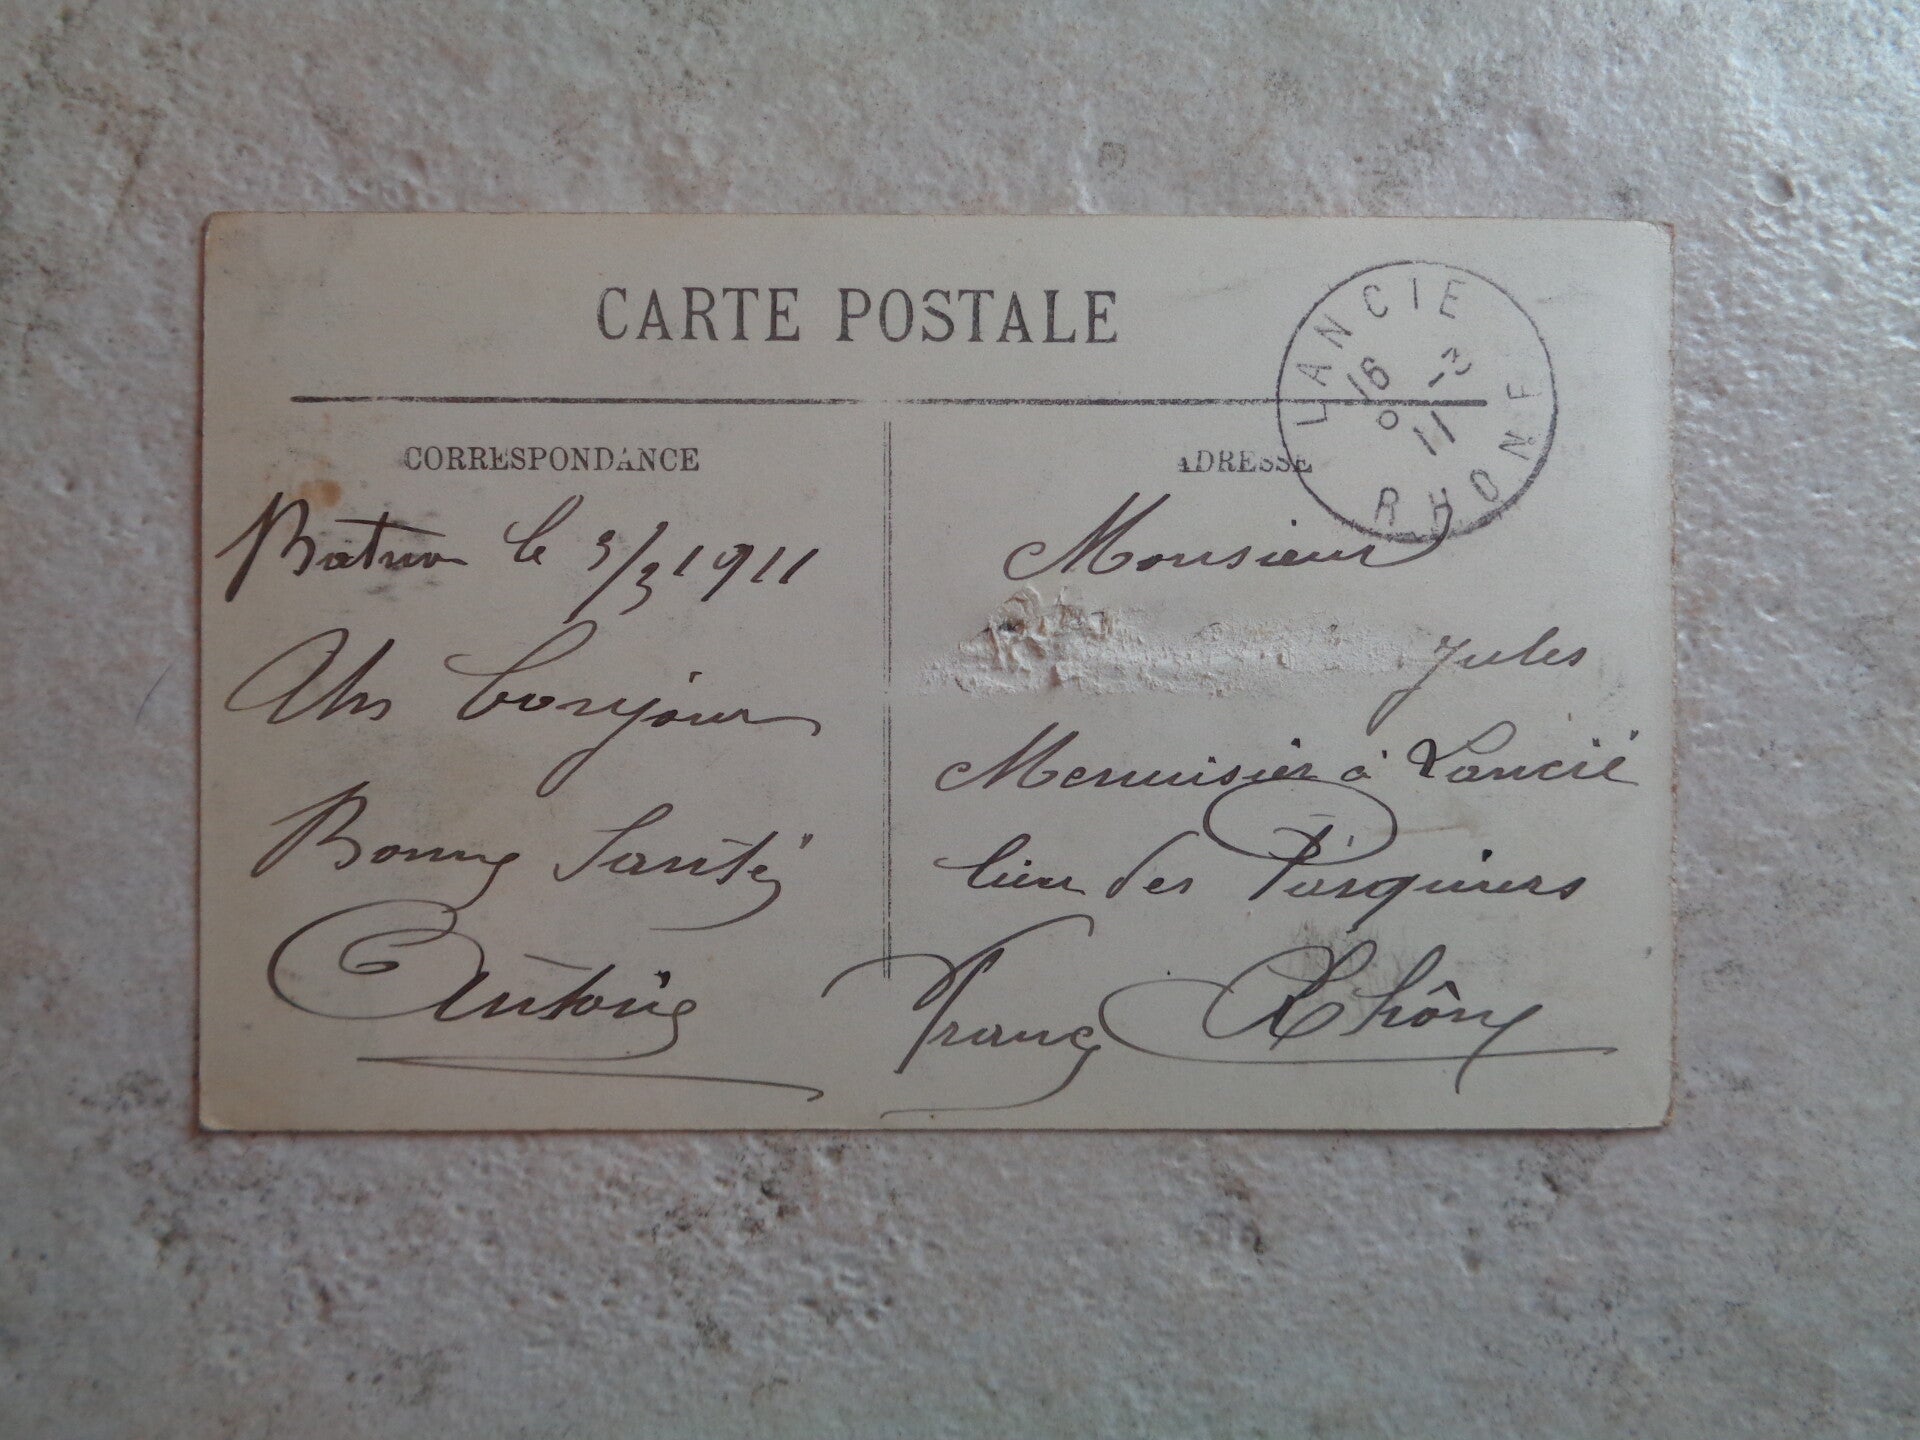 CARTE POSTALE
LANCIE
16 -3
11
RHONE
CORRESPONDANCE
ADRESSE
le 3/3 1911
Un bonjour
Bonne Santé
Antoine
Monsieur
Jules
Menuisier à Lancié
lieu des Pasquiers
Rhône
France